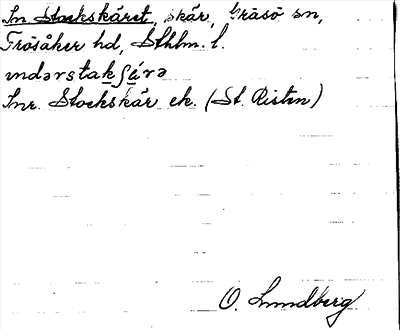 In. Stockskäret, skär, Gräsö sn,
Frösåker hd, Sthlm. l.
Inr. Stockskär ek. (St. Risten)
O. Lundberg